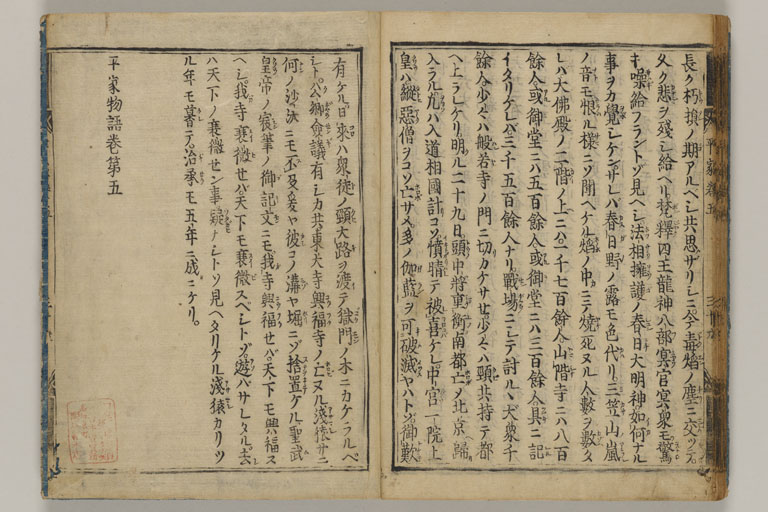 長ク朽損ノ期アルヘシ共思ザリシニ今毒焔ノ塵ニ交ッテ
久ク悲ヲ殘シ給ヘリ梵釋四王龍神八部冥官冥衆モ驚
キ噪給フラントゾ見ヘシ法相擁護ノ春日大明神如何ナル
事ヲカ覺シケンサレハ春日野ノ露モ色代リ三笠山ノ嵐
ノ音モ恨ル様ニソ聞ヘケル焔ノ中ニテ燒死ヌル人數ヲ數タ
レハ大佛殿ノ二階ノ上ニハ一千七百餘人山階寺ニハ八百
餘人或御堂ニハ五百餘人或御堂ニハ三百餘人具ニ記
イタリケレバ三千五百餘人ナリ戰場ニシテ討ルヽ大衆千
餘人少々ハ般若寺ノ門ニ切カケサセ少々ハ頸共持テ都
ヘ上ラレケリ明ル二十九日頭中將重衡南都亡メ北京ヘ歸
入ラル凡ハ入道相國計コソ憤晴テ被喜ケレ中宮一院上
皇ハ縱惡僧ヲコソ亡サメ多ノ伽藍ヲ可破滅ヤハトゾ御歎
有ケル日來ハ衆徒ノ頸大路ヲ渡テ獄門ノ木ニカケラルベ
シト公卿僉議有シカ共東大寺興福寺ノ亡ヌル淺猿サニ
何ノ沙汰ニモ不及爰ヤ彼コノ溝ヤ堀ニゾ捨置ケル聖武
皇帝ノ宸筆ノ御記文ニモ我寺興福セバ天下モ興福ス
ヘシ我寺衰微セバ天下モ衰微スヘシトゾ遊バサレタル去レ
ハ天下ノ衰微セン事疑ナシトソ見ヘタリケル淺猿カリツ
ル年モ暮テ治承モ五年ニ成ニケリ。
平家物語卷第五
平家卷五